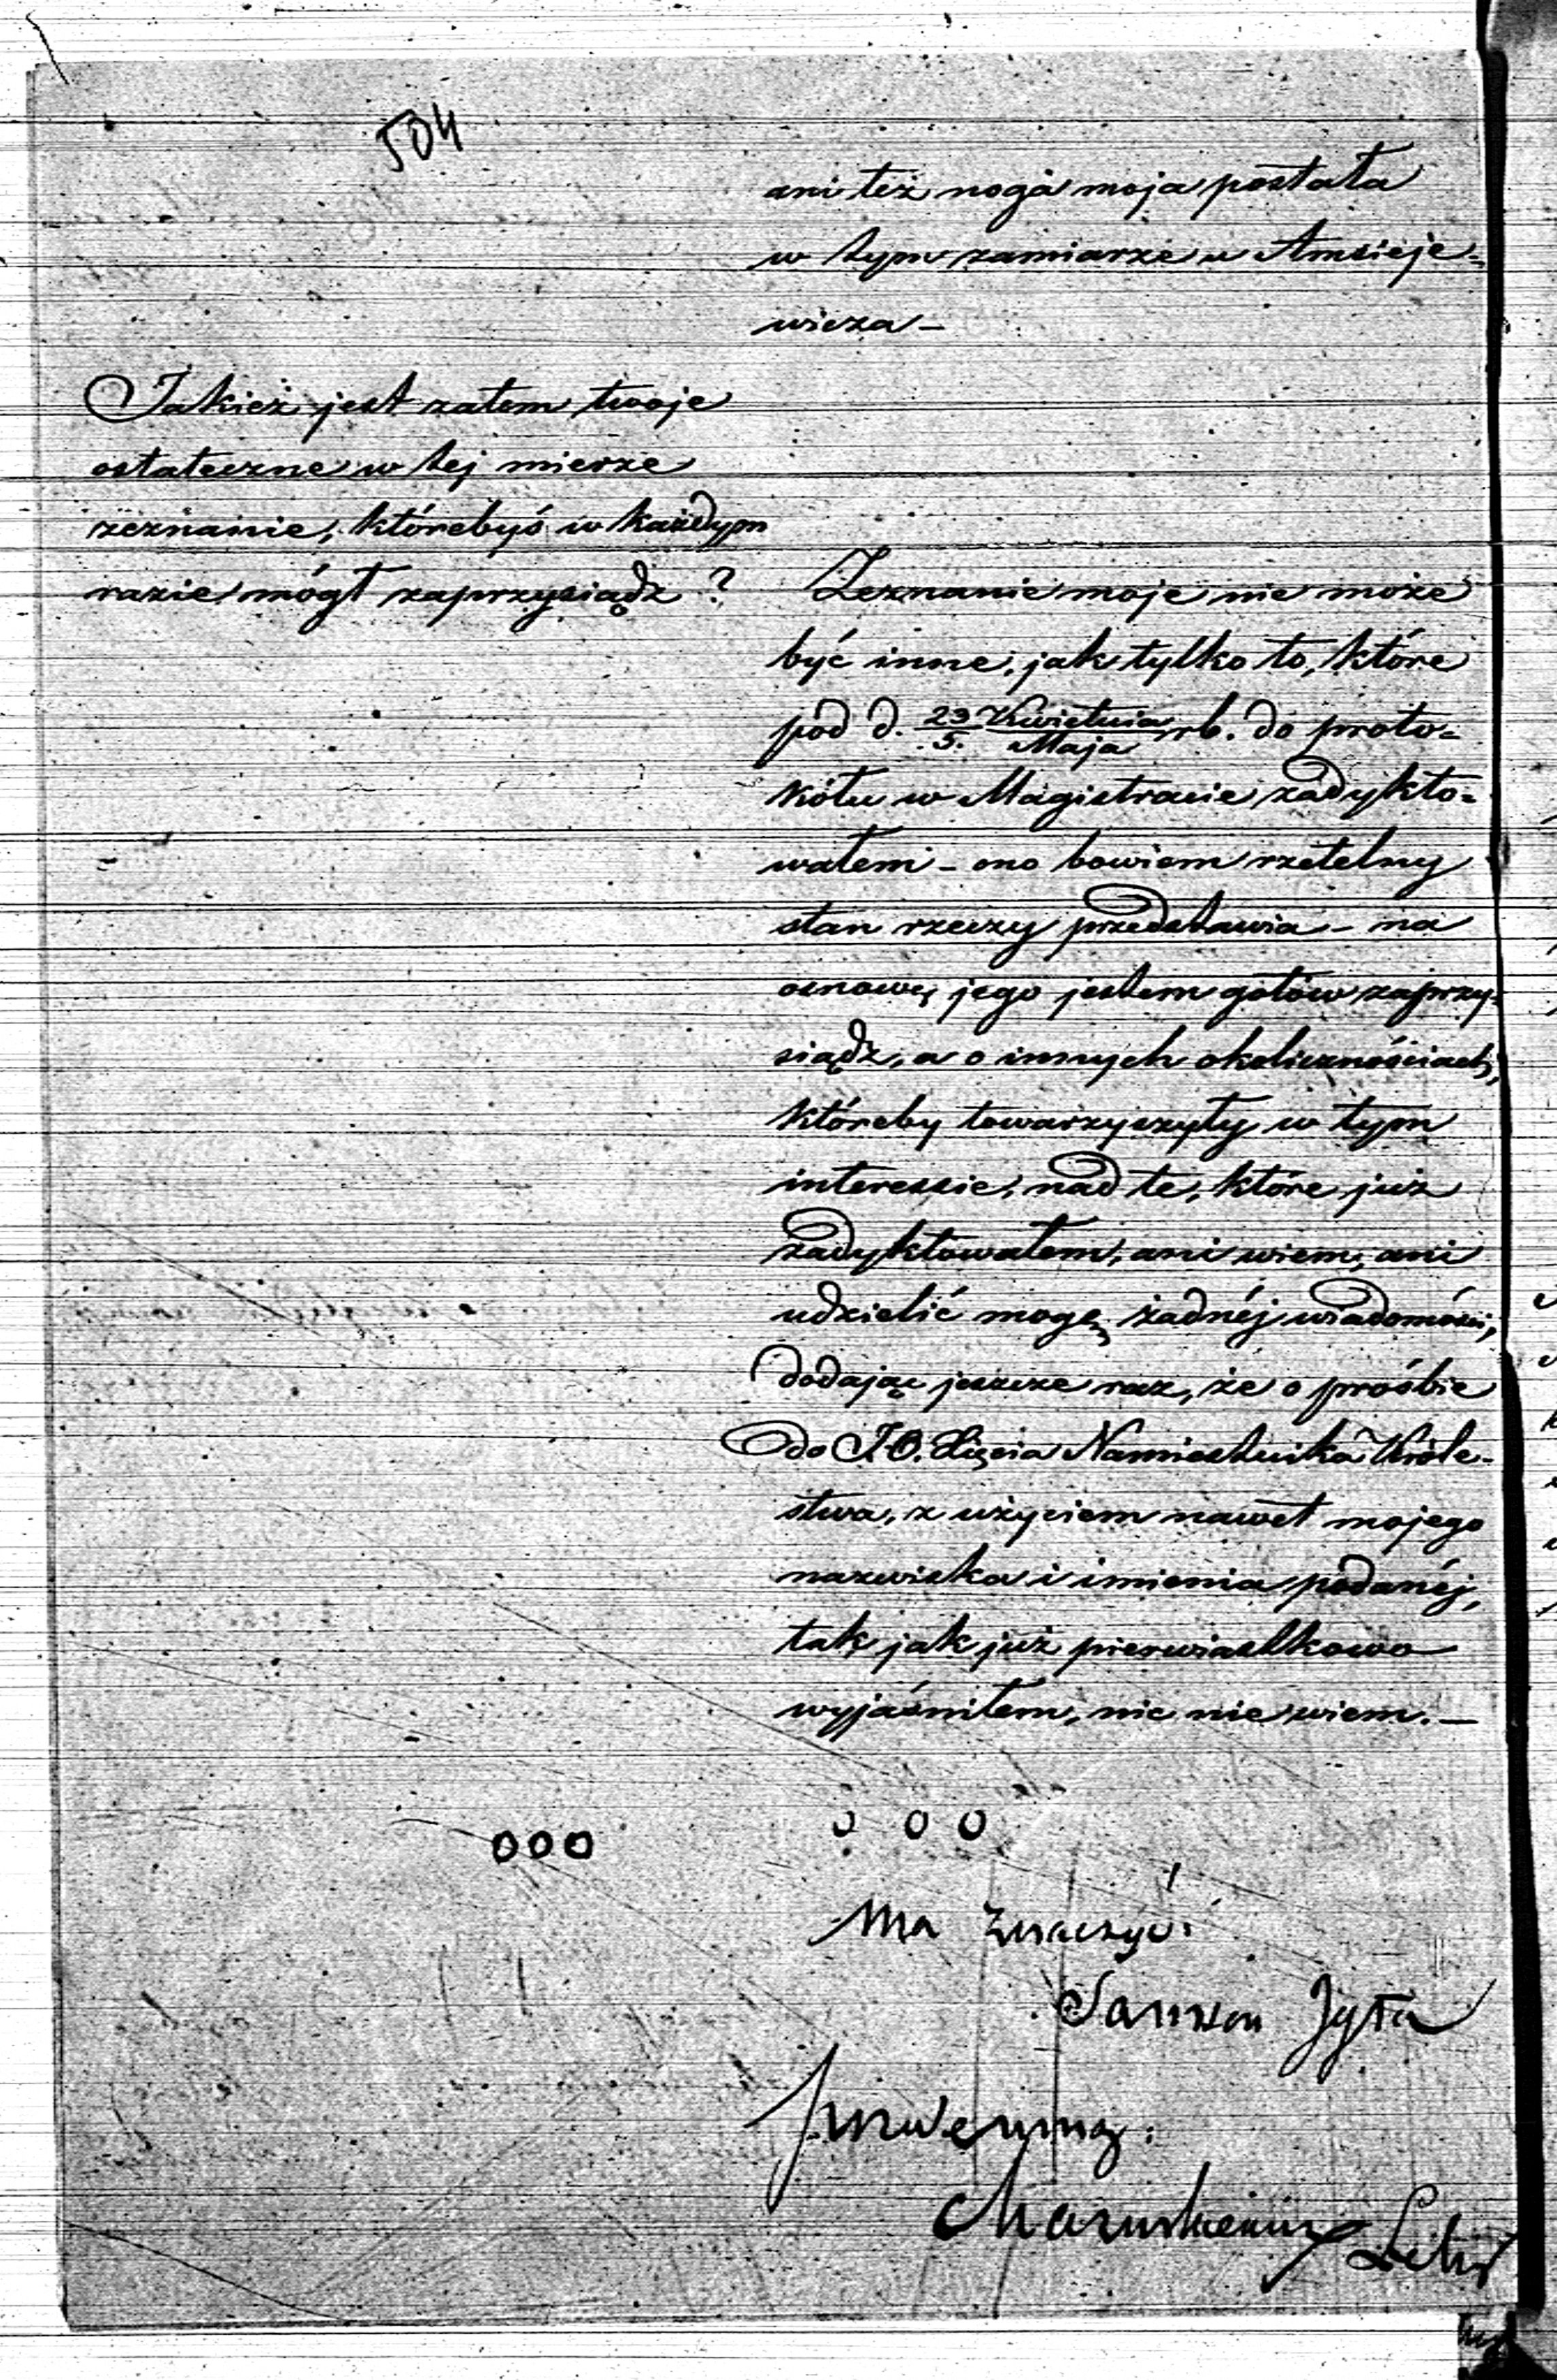 504
ani też noga moja postała
w tym zamiarze u Amsieje-
wicza –
Jakież jest zatem twoje
ostateczne w tej mierze
zeznanie, którebyś w każdym
razie mógł zaprzysiądz ?
Zeznanie moje nie może
być inne, jak tylko to, które
pod d. 23 Kwietnia / 5. Maja rb. do proto-
kółu w Magistracie zadykto-
wałem – ono bowiem rzetelny
stan rzeczy przedstawia – na
osnowę jego jestem gotów zaprzy-
siądz, a o innych okolicznościach,
któreby towarzyszyły w tym
interessie, nad te, które już
zadyktowałem, ani wiem, ani
udzielić mogę żadnéj wiadomości,
dodając jeszcze raz, że o prośbie
do J.O. Xięcia Namiestnika Króle-
stwa, z użyciem nawet mojego
nazwiska i imienia podanéj,
tak jak już pierwiastkowo
wyjaśniłem, nic nie wiem. —
000
000
Ma znaczyć
Jgła